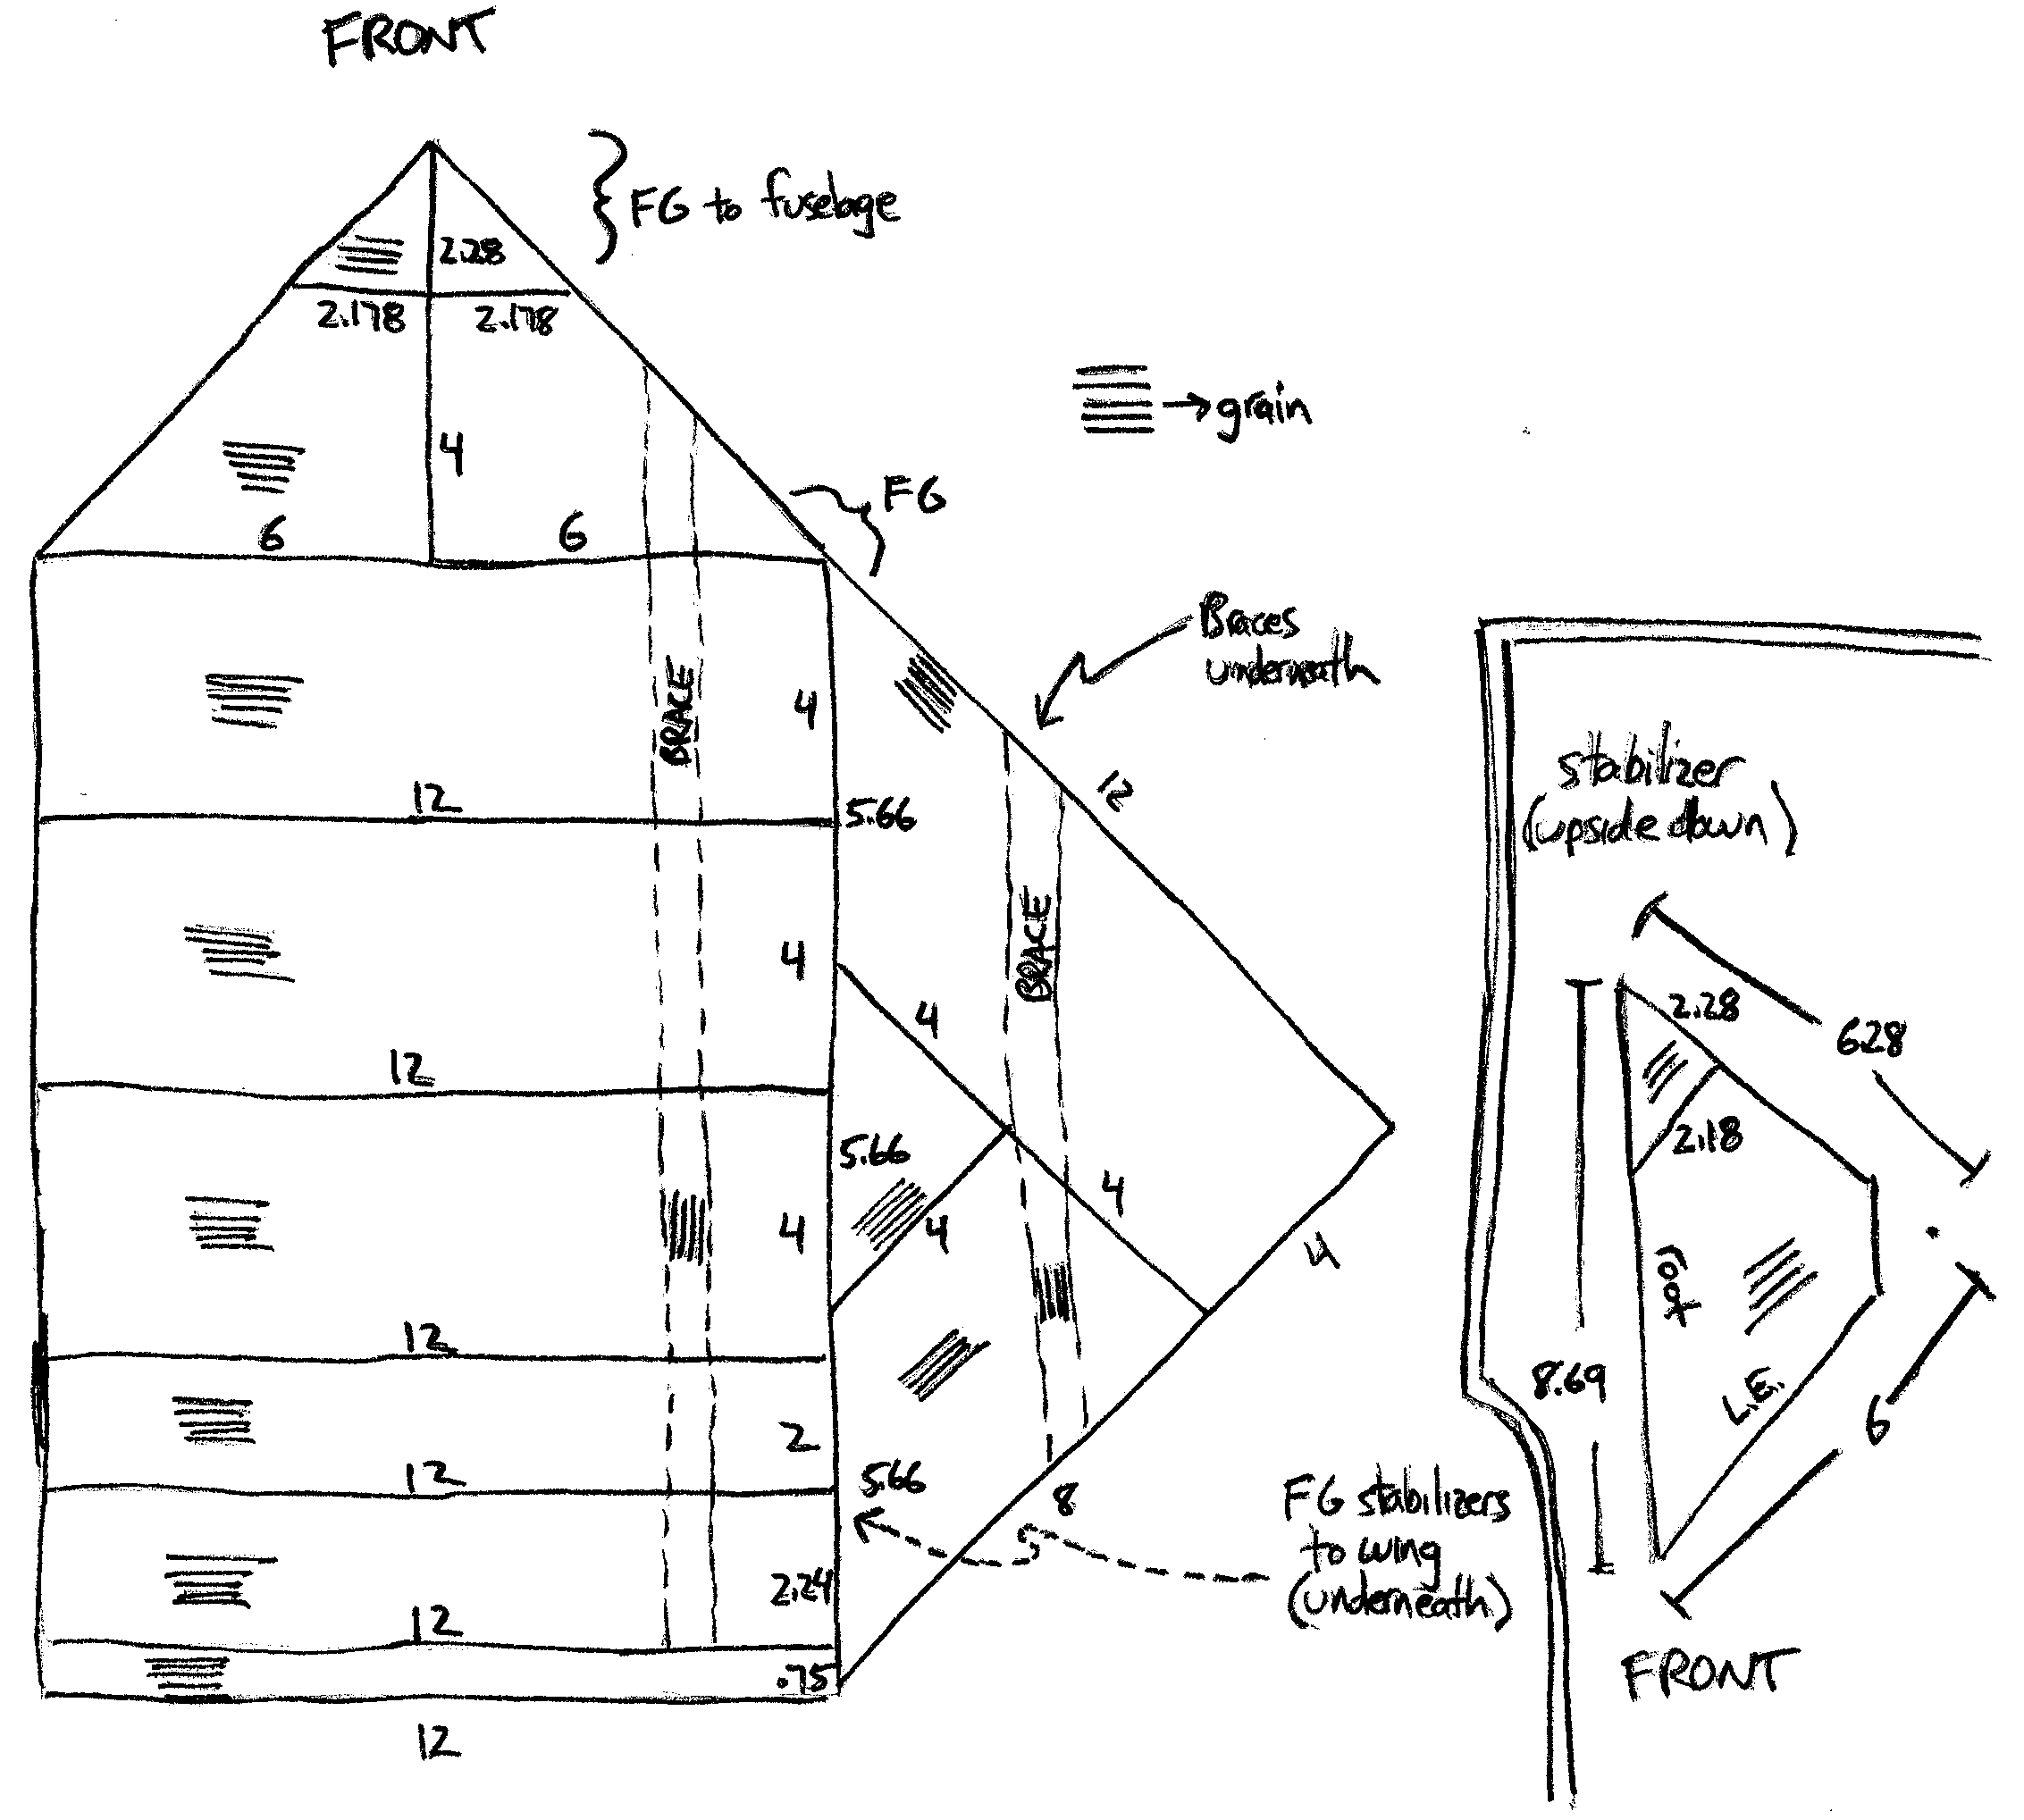 FRONT
FG to fuselage
2.28
2.178
2.178
grain
4
FG
6
6
Braces
underneath
BRACE
4
12
12
5.66
stabilizer
(upside down)
BRACE
4
4
12
2.28
6.28
2.18
5.66
4
4
4
4
root
12
8.69
L.E.
2
6
12
5.66
8
FG stabilizers
to wing
(underneath)
2.24
12
.75
FRONT
12